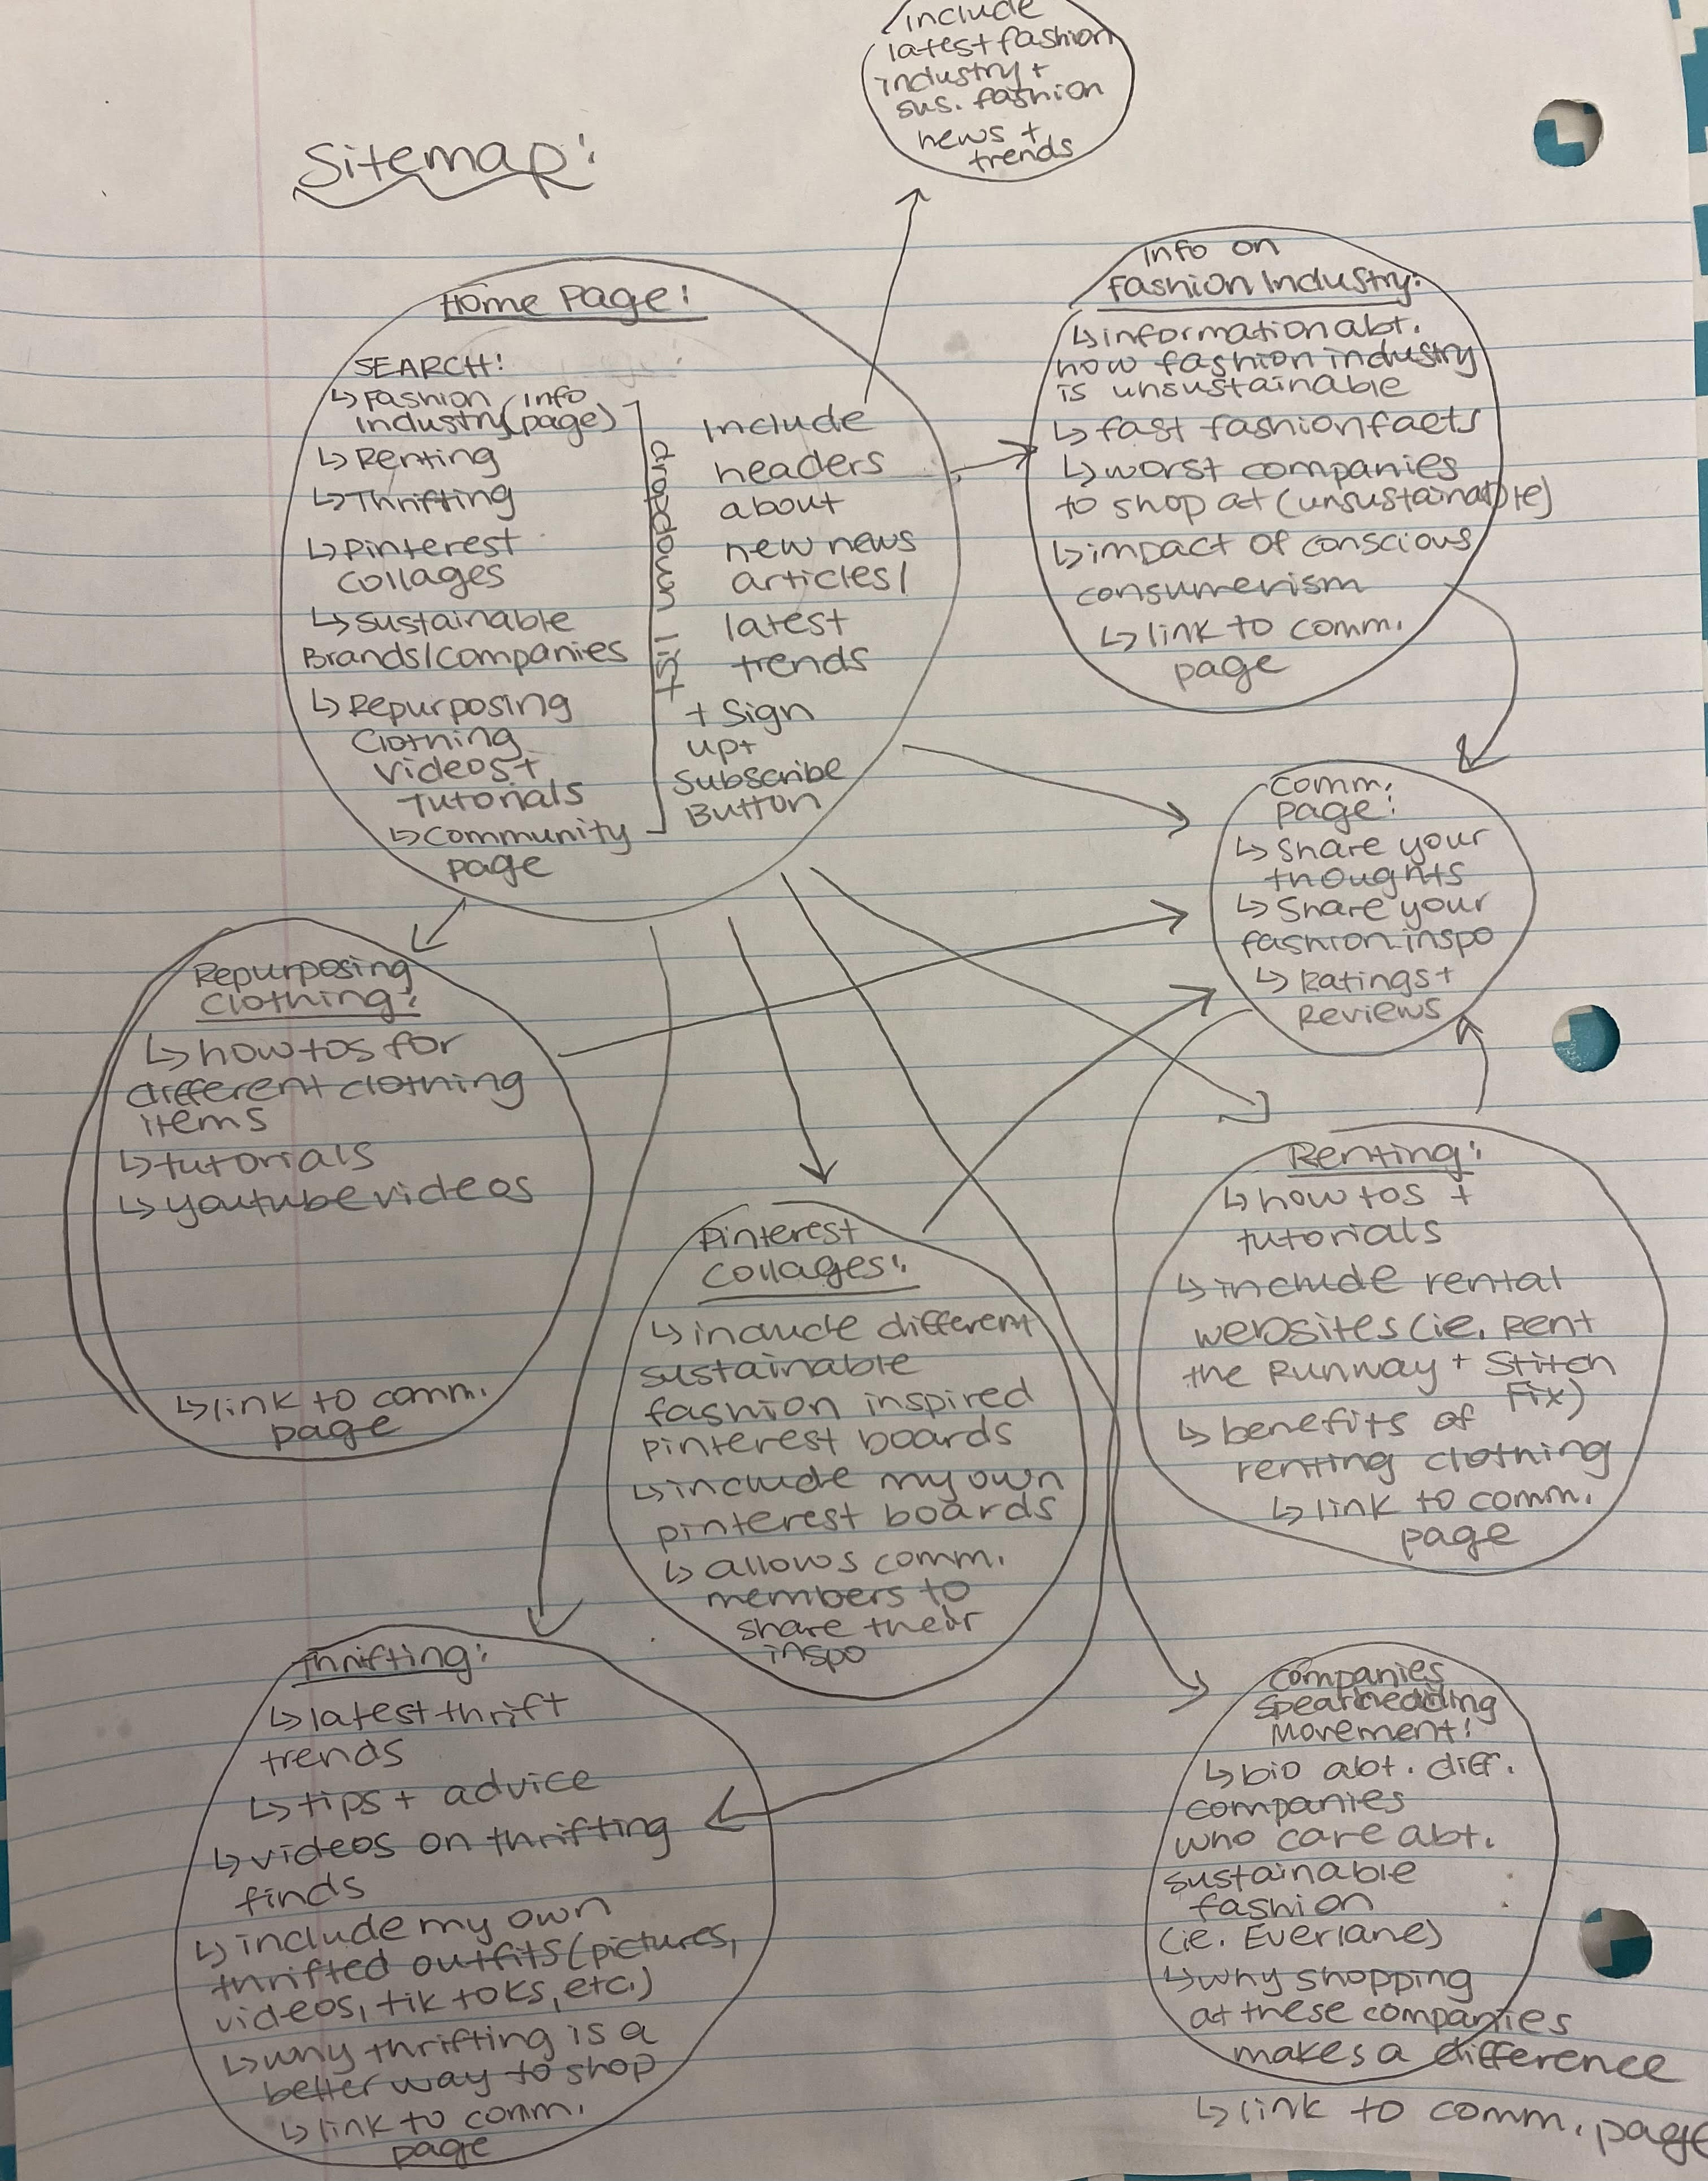 include
latest fashion
industry +
sus. fashion
news +
trends
Sitemap:
Home Page:
SEARCH:
↳ Fashion Info
Industry (page)
↳ Renting
↳ Thrifting
↳ Pinterest
Collages
↳ Sustainable
Brands/Companies
↳ Repurposing
Clothing
Videos +
Tutorials
↳ Community
page
dropdown list
Include
headers
about
new news
articles/
latest
trends
+ Sign
up +
Subscribe
Button
Info on
Fashion Industry:
↳ information abt.
how fashion industry
is unsustainable
↳ fast fashion facts
↳ worst companies
to shop at (unsustainable)
↳ impact of conscious
consumerism
↳ link to comm.
page
Comm.
page:
↳ Share your
thoughts
↳ Share your
fashion inspo
↳ Ratings +
Reviews
Repurposing
Clothing:
↳ how tos for
different clothing
items
↳ tutorials
↳ youtube videos
↳ link to comm.
page
Pinterest
Collages:
↳ include different
sustainable
fashion inspired
pinterest boards
↳ include my own
pinterest boards
↳ allows comm.
members to
share their
inspo
Renting:
↳ how tos +
tutorials
↳ include rental
websites (ie. Rent
the Runway + Stitch
Fix)
↳ benefits of
renting clothing
↳ link to comm.
page
Thrifting:
↳ latest thrift
trends
↳ tips + advice
↳ videos on thrifting
finds
↳ include my own
thrifted outfits (pictures,
videos, tik toks, etc.)
↳ why thrifting is a
better way to shop
↳ link to comm.
page
Companies
Movement:
↳ bio abt. diff.
companies
who care abt.
sustainable
fashion
(ie. Everlane)
↳ why shopping
at these companies
makes a difference
↳ link to comm. page